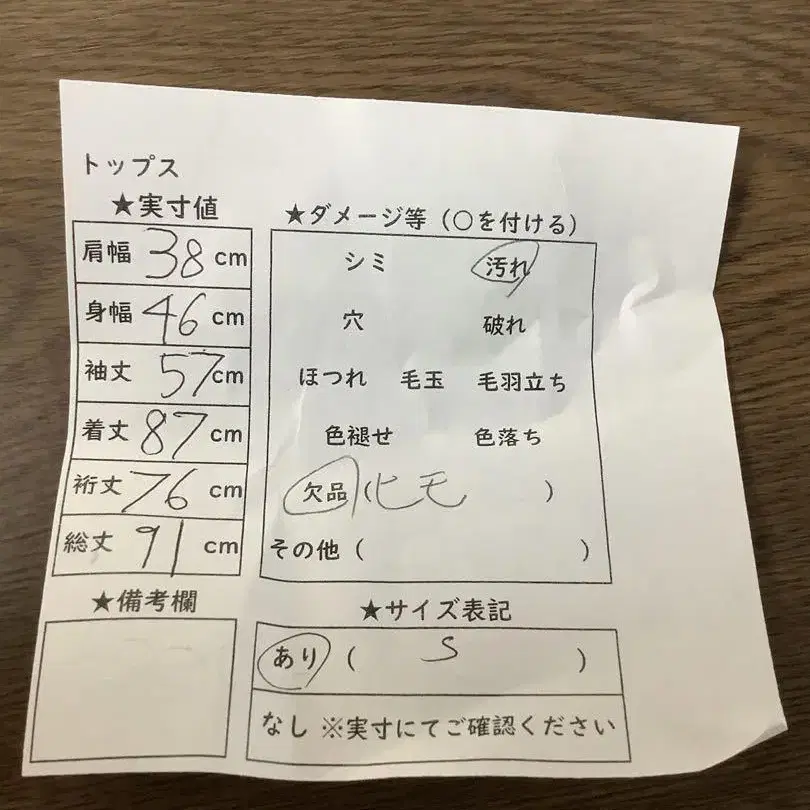 トップス
★実寸値
肩幅 38 cm
身幅 46 cm
袖丈 57 cm
着丈 87 cm
裄丈 76 cm
総丈 91 cm
★備考欄
★ダメージ等（○を付ける）
シミ 汚れ
穴 破れ
ほつれ 毛玉 毛羽立ち
色褪せ 色落ち
欠品（ヒモ ）
その他（ ）
★サイズ表記
あり（ S ）
なし ※実寸にてご確認ください